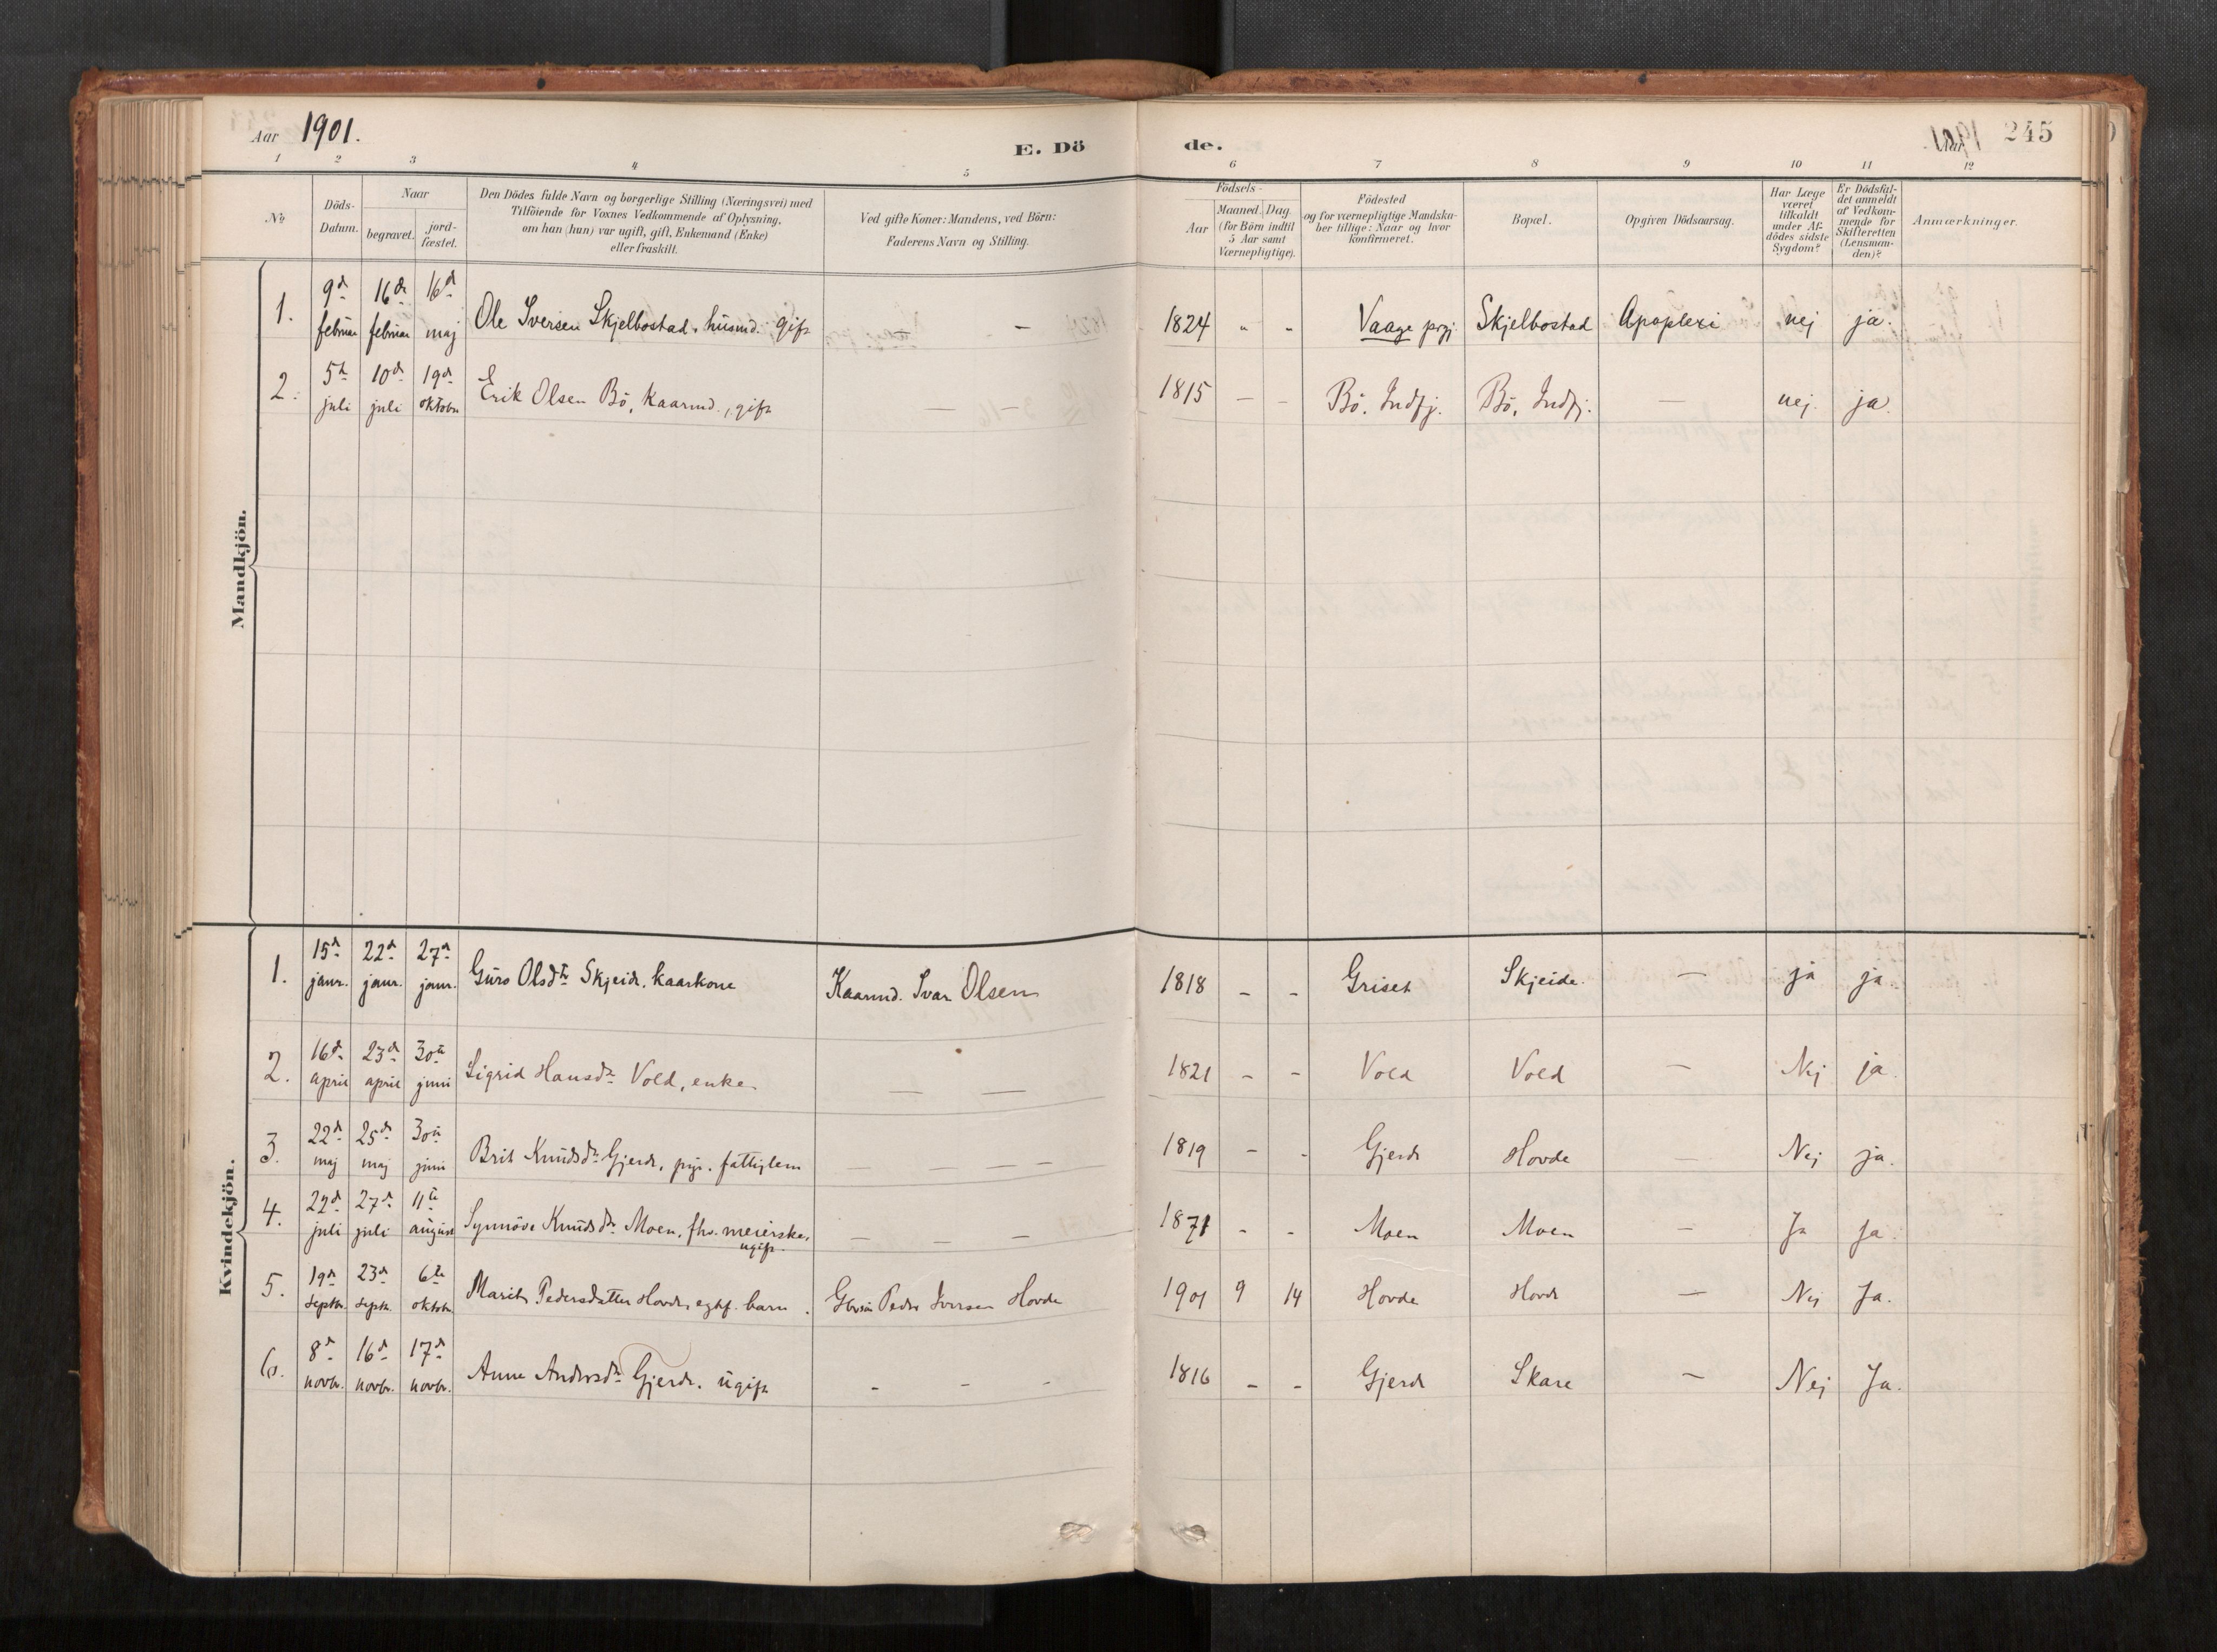 Aar 1901. E. Döde. 245
1 2 3 4 5 6 7 8 9 10 11 12
No
Döds-Datum.
Naar
begravet. jordfæstet.
Den Dödes fulde Navn og borgerlige Stilling (Næringsvei) med
Tilföiende for Voxnes Vedkommende af Oplysning,
om han (hun) var ugift, gift, Enkemand (Enke)
eller fraskilt.
Ved gifte Koner: Mandens, ved Börn:
Faderens Navn og Stilling.
Födsels-
Aar
Maaned. Dag.
(for Börn indtil
5 Aar samt
Værnepligtige).
Födested
og for værnepligtige Mandska-
ber tillige: Naar og hvor
konfirmeret.
Bopæl.
Opgiven Dödsaarsag.
Har Læge
været
tilkaldt
under Af-
dödes sidste
Sygdom?
Er Dödsfal-
det anmeldt
af Vedkom-
mende for
Skifteretten
(Lensman-
den)?
Anmærkninger.
Mandkjön.
1. 9d februar 16de februar 16d maj Ole Iversen Skjelbostad, husmd. gift – 1824 " " Vaage prgj. Skjelbostad Apoplexi nej ja.
2. 5te juli 10de juli 19de oktobr Erik Olsen Bö, Kaarmd., gift — — 1815 — – Bö, Indfj. Bö, Indfj. — nej. ja.
Kvindekjön.
1. 15d janr. 22d janr. 27d janr. Guro Olsdtr Skjeide, kaarkone Kaarmd. Ivar Olsen 1818 – – Griset Skjeide. — ja ja.
2. 16d april 23d april 30te juni Sigrid Hansdr Vold, enke — — 1821 – – Vold Vold — Nej ja
3. 22d maj 25d maj 30te juni Brit Knudsdr Gjerde, fattiglem — — — 1819 – - Gjerde Hovde — Nej ja.
4. 22d juli 27d juli 11te august Synnöve Knudsdr Moen, fhv. meierske, ugift — — — 1871 - - Moen Moen — Ja ja.
5. 19d septbr. 23d septbr. 6te oktobr. Marit Pedersdatter Hovde, egtef. barn. Peder Iversen Hovde 1901 9 14 Hovde Hovde — Nej Ja.
6. 8d novbr. 16d novbr. 17d novbr. Anne Andersdr Gjerde, ugift - - - 1816 – – Gjerde Skare — Nej Ja.